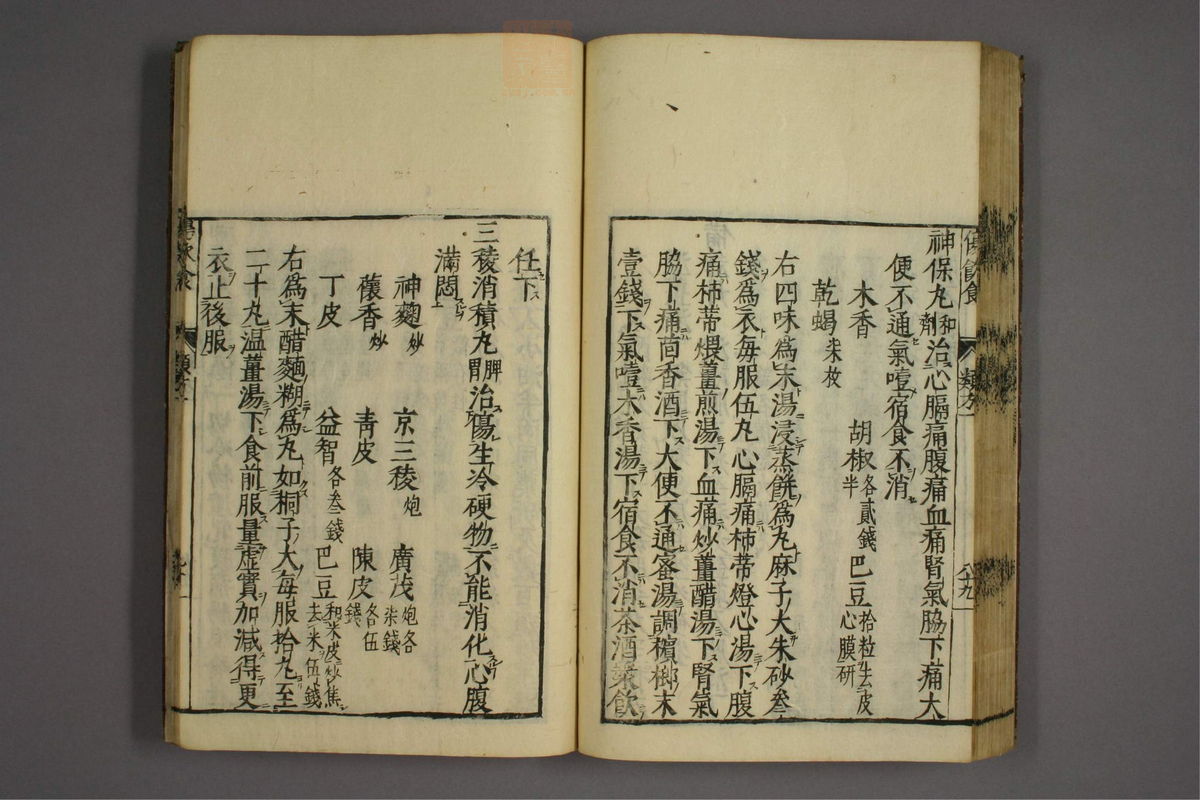 神保丸和劑治心膈痛腹痛血痛腎氣脇下痛大
便不通氣噎宿食不消
木香 胡椒各貳錢半 巴豆拾粒去皮心膜研
乾蝎柒枚
右四味爲末湯浸蒸餅爲丸麻子大朱砂叁
錢爲衣每服伍丸心膈痛柿蔕燈心湯下腹
痛柿蔕煨薑煎湯下血痛炒薑醋湯下腎氣
脇下痛茴香酒下大便不通蜜湯調檳榔末
壹錢下氣噎木香湯下宿食不消茶酒漿飲
任下
三稜消積丸脾胃治傷生冷硬物不能消化心腹
滿悶
神麯炒 京三稜炮 廣茂炮各柒錢
蘹香炒 靑皮 陳皮各伍錢
丁皮 益智各叁錢 巴豆和米皮炒焦去米伍錢
右爲末醋麵糊爲丸如桐子大每服拾丸至
二十丸温薑湯下食前服量虛實加減得更
衣止後服